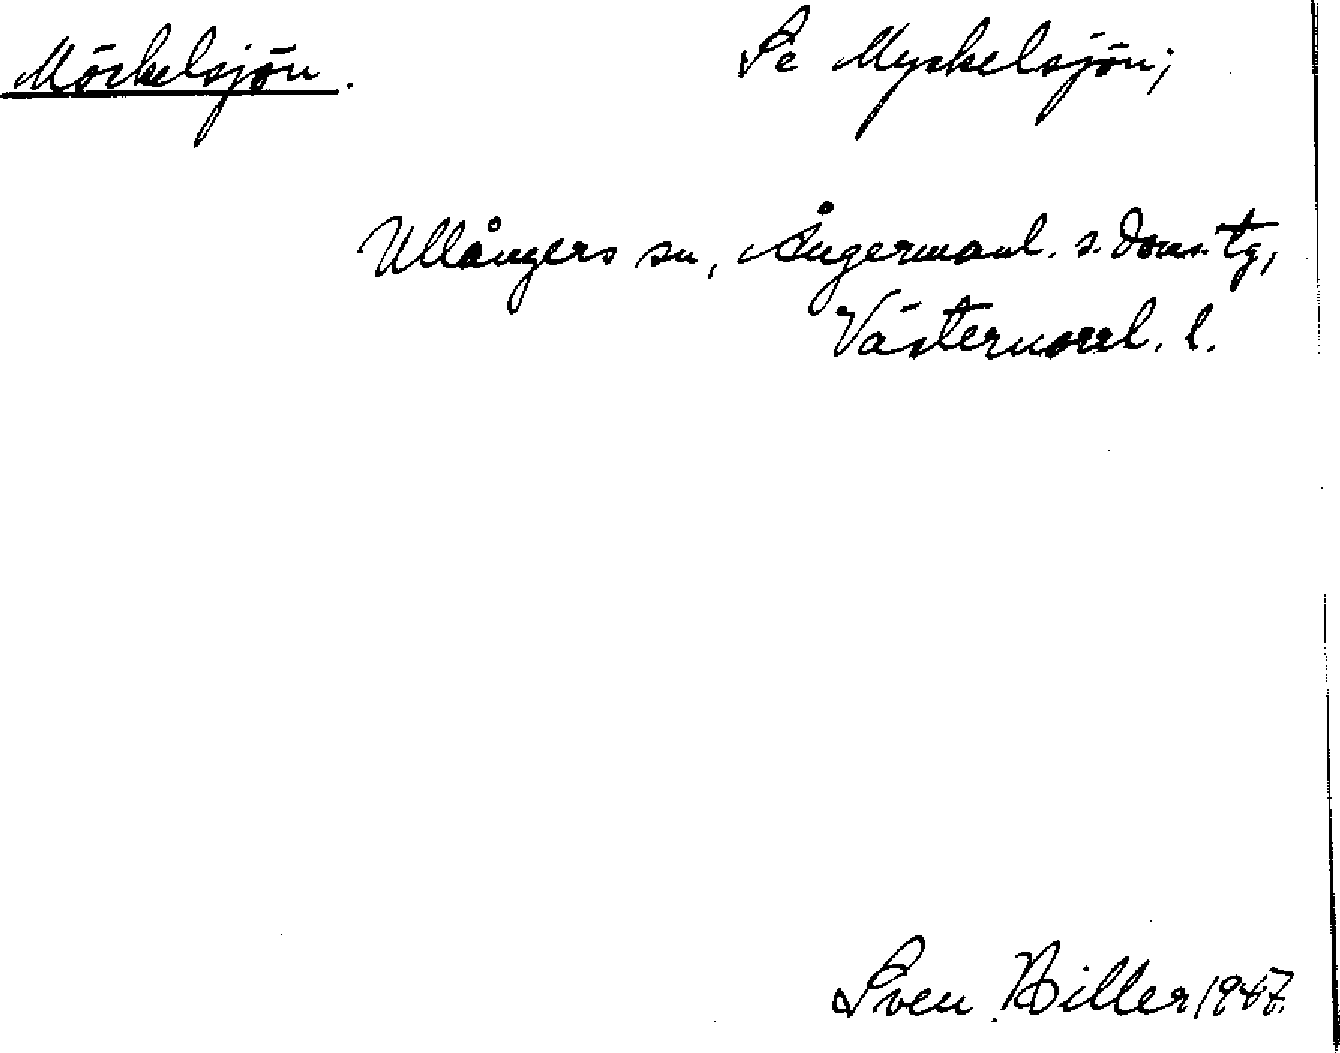 Möckelsjön. Se Myckelsjön;
Ullångers sn, Ångermanl. s. doms. tg,
Västernorrl. l.
Sven Biller 1947.